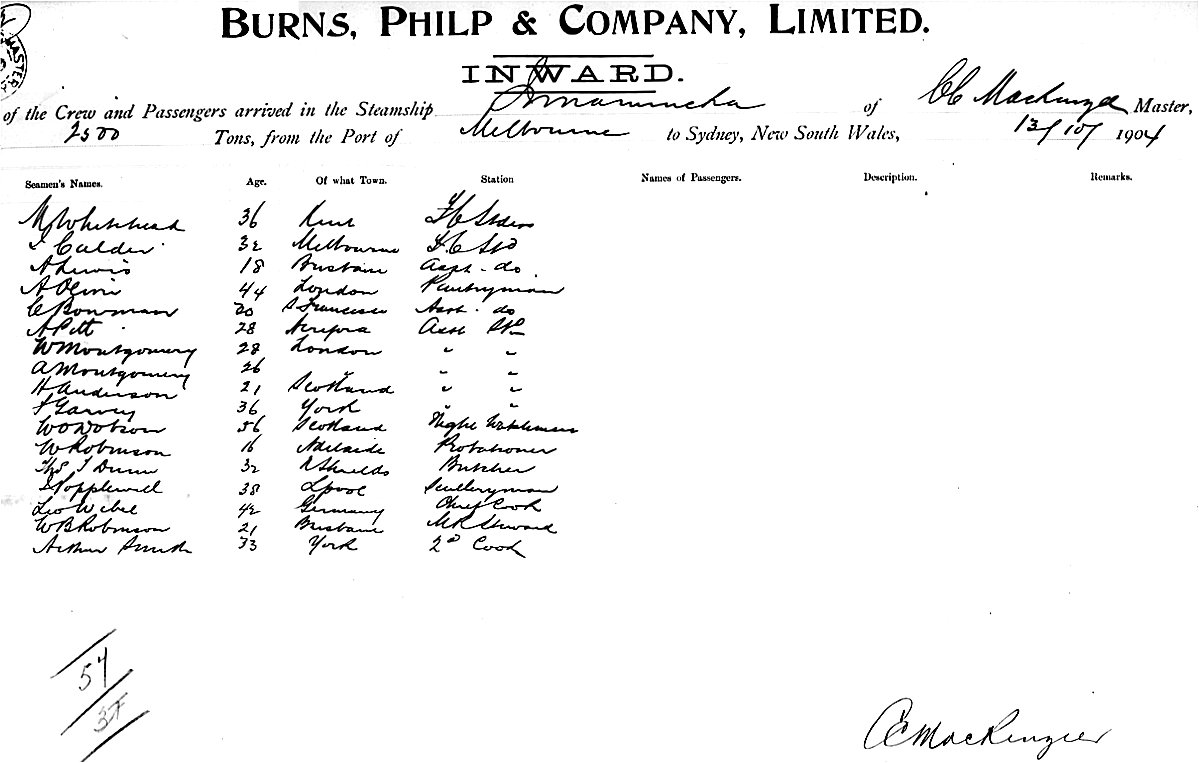 BURNS, PHILP & COMPANY, LIMITED.
INWARD.
of the Crew and Passengers arrived in the Steamship Innamincka of C C Mackenzie Master,
2500 Tons, from the Port of Melbourne to Sydney, New South Wales, 13/10/1904
Seamen's Names. Age. Of what Town. Station Names of Passengers. Description. Remarks.
M Whitehead 36 Kent F C Stdess
Calder 32 Melbourne F. C Std
A Lewis 18 Brisbane Asst - do.
A Olivir 44 London Pantryman
C Bowman 20 S Francisco Asst - do
A Pitt 28 Asst
W Montgomery 28 London " "
A Montgomery 26 " " "
H Anderson 21 Scotland " "
F Garvey 36 York " "
W O Watson 56 Scotland Night Watchman
W Robinson 16 Adelaide Probationer
Thos J Dunn 32 N Shields Butcher
Popplewell 38 Lpool Sculleryman
Leo Wibel 42 Germany Chief Cook
W B Robinson 21 Brisbane M R Steward
Arthur Smith 33 York 2nd Cook
54
37
C C MacKenzie